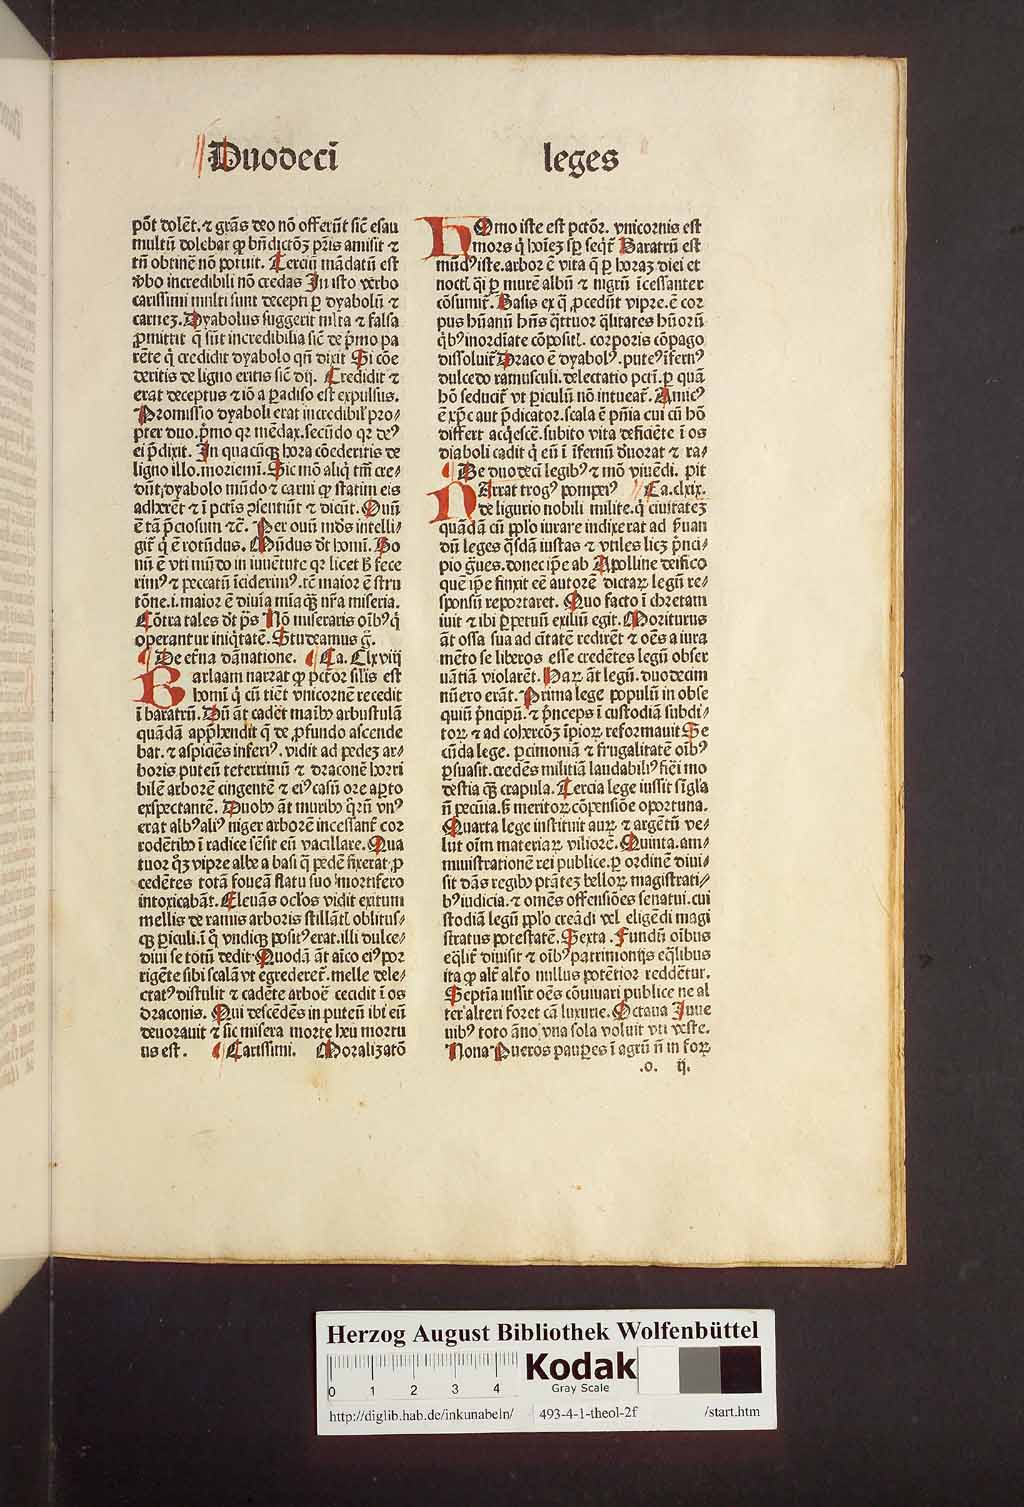 Duodecī leges
pōt dolēt. ⁊ grās deo nō offerūt sic̄ esau
multū dolebat ꝙ bn̄dictōꝫ pr̄is amisit ⁊
tn̄ obtinē nō potuit. Terciū mādatū est
v̓bo incredibili nō credas In isto verbo
carissimi multi sunt decepti ꝑ dyabolū ⁊
carneꝫ. Dyabolus suggerit mlta ⁊ falsa
ꝓmittit q̄ sūt incredibilia sic̄ de p̄mo pa
rēte q̇ credidit dyabolo qn̄ dixit Si cōe
deritis de ligno eritis sic̄ dij. Credidit ⁊
erat deceptus ⁊ iō a ꝑadiso est expulsus.
Promissio dyaboli erat incredibil̓ pro⸗
pter duo. p̄mo qꝛ mēdax. secūdo qꝛ deꝰ
ei p̄dixit. In quacūqꝫ hora cōederitis de
ligno illo. moriemī. Sic mō aliq̇ tm̄ cre⸗
dūt dyabolo mūdo ⁊ carni ꝙ statim eis
adherēt ⁊ ī pctīs ꝯsentiūt ⁊ dicūt. Ouū
ē tā p̄ciosum ⁊c̄. Per ouū mūdꝰ intelli⸗
git̄ q̇ ē rotūdus. Mūdus dt̄ homī. Bo
nū ē vti mūdo in iuuētute qꝛ licet hͦ fece
rimꝰ ⁊ peccatū īciderimꝰ. tn̄ maior ē stru
tōne .i. maior ē diuīa mīa qꝫ nr̄a miseria.
Cōtra tales dt̄ pͣs Nō miseraris oībꝰ q̇
operantur iniq̇tatē. Studeamus gͦ.
De etn̄a dānatione. Ca. Clxviij
Barlaam narrat ꝙ pctōr sil̓is est
homī q̇ cū tiēt vnicornē recedit
ī baratrū. Dū āt cadēt maībꝰ arbustulā
quādā appͤhendit q̄ de ꝓfundo ascende
bat. ⁊ aspiciēs inferiꝰ. vidit ad pedeꝫ ar⸗
boris puteū teterrimū ⁊ draconē horri
bilē arborē cingentē ⁊ eiꝰ casū ore aꝑto
exspectantē. Duobꝰ āt muribꝰ qͦrū vnꝰ
erat albꝰ aliꝰ niger arborē incessant̄ cor
rodētibꝰ ī radice sēsit eū vacillare. Qua
tuor qͦꝫ vipre albe a basi q̄ pedē fixerat ꝓ
cedētes totā foueā flatu suo mortifero
intoxicabāt. Eleuās ocl̓os vidit exitum
mellis de ramis arboris stillātē oblitus⸗
qꝫ ꝑiculi. ī qͦ vndiqꝫ positꝰ erat. illi dulce⸗
dini se totū dedit. Quodā āt aīco eiꝰ por
rigēte sibi scalā vt egrederet̄. melle dele⸗
ctatꝰ distulit ⁊ cadēte arboē cecidit ī os
draconis. Qui descēdēs in puteū ibi eū
deuorauit ⁊ sic misera morte heu mortu
us est. Carissimi. Moralizatō
Homo iste est pctōr. vnicornis est
mors q̄ hoīeꝫ sꝑ seqͥt̄ Baratrū est
mūdꝰ iste. arbor ē vita q̄ ꝑ horaꝫ diei et
noctꝭ q̄si ꝑ murē albū ⁊ nigrū īcessanter
cōsumit̄. Basis ex q̄ ꝓcedūt vipre. ē cor
pus hūanū hn̄s q̄ttuor q̄litates hūorū
q̇bꝰ inordīate cōpositꝭ. corporis cōpago
dissoluit̄ Draco ē dyabolꝰ. puteꝰ īfernꝰ
dulcedo ramusculi. delectatio pctī. ꝑ quā
hō seducit̄ vt ꝑiculū nō intueat̄. Amicꝰ
ē xp̄c aut p̄dicator. scala ē pn̄ia cui cū hō
differt acq̇escē. subito vita deficiēte ī os
diaboli cadit q̇ eū ī īfernū d̓uorat ⁊ ra⸗
De duodecī legibꝰ ⁊ mō viuēdi. pit
Narrat trogꝰ pompeiꝰ Ca. clxix.
de ligurio nobili milite. q̇ ciuitateꝫ
quādā cū ppl̓o iurare indixerat ad p̄uan
dū leges q̄sdā iustas ⁊ vtiles licꝫ p̄nci⸗
pio g̈ues. donec ip̄e ab Apolline deifico
quē ip̄e finxit eē autorē dictaꝝ legū re⸗
sponsū reportaret. Quo facto ī chretam
iuit ⁊ ibi ꝑpetuū exiliū egit. Moriturus
āt ossa sua ad cītatē redirēt ⁊ oēs a iura
mēto se liberos esse credētes legū obser
uātiā violarēt. Haꝝ āt legū. duodecim
nūero erāt. Prima lege populū in obse
quiū p̄ncipū. ⁊ p̄nceps ī custodiā subdi⸗
toꝝ ⁊ ad cohercōꝫ īpioꝝ reformauit Se
cūda lege. ꝑcimoniā ⁊ frugalitatē oībꝰ
ꝑsuasit. credēs militiā laudabiliꝰ fiēri mo
destia qꝫ crapula. Tercia lege iussit sīgl̓a
n̄ pecūia. sꝫ meritoꝝ cōpensiōe oportuna.
Quarta lege instituit auꝝ ⁊ argētū ve⸗
lut oīm materiaꝝ viliorē. Quinta. am⸗
minístrationē rei publice. ꝑ ordinē diui⸗
sit dās regibꝰ ptātēꝫ belloꝝ magistrati⸗
bꝰ iudicia. ⁊ omēs offensiōes senatui. cui
stodiā legū ppl̓o creādi vel eligēdi magi
stratus potestatē. Sexta. Fundū oībus
eq̄lit̄ diuisit ⁊ oībꝰ patrimonijs eq̄libus
ita ꝙ alt̄ alt̄o nullus potētior reddētur.
Septīa iussit oēs cōuiuari publice ne al
ter alteri foret cā luxurie. Octaua Juue
nibꝰ toto āno vna sola voluit vti veste.
Nona Pueros pauꝑes ī agrū n̄ in foꝝ
.o. ij.
Herzog August Bibliothek Wolfenbüttel
0 1 2 3 4
Kodak
Gray Scale
http://diglib.hab.de/inkunabeln/ 493-4-1-theol-2f /start.htm